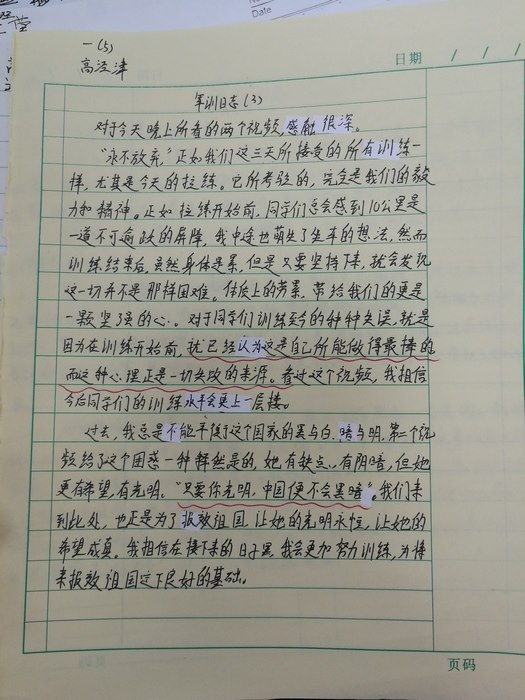 Date
一(5)
高泾津
日期 / / /
军训日志(3)
对于今天晚上所看的两个视频,感触很深。
“永不放弃,”正如我们这三天所接受的所有训练一
样,尤其是今天的拉练。它所考验的,完全是我们的毅
力和精神。正如拉练开始前,同学们总会感到10公里是
一道不可逾越的屏障,我中途也萌生了坐车的想法,然而
训练结束后,虽然身体是累,但是只要坚持下来,就会发现
这一切并不是那样困难。体质上的劳累,带给我们的更是
一颗坚强的心。对于同学们训练至今的种种失误,就是
因为在训练开始前,就已经认为这是自己所能做得最棒的
而这种心理正是一切失败的来源。看过这个视频,我相信
今后同学们的训练水平会更上一层楼。
过去,我总是不能平衡于这个国家的黑与白,暗与明,第二个视
频给了这个困惑一种释然是的,她有缺点、有阴暗,但她
更有希望,有光明。“只要你光明,中国便不会黑暗”。我们来
到此处,也正是为了报效祖国,让她的光明永恒,让她的
希望成真。我相信在接下来的日子里,我会更加努力训练,为将
来报效祖国定下良好的基础。
页码